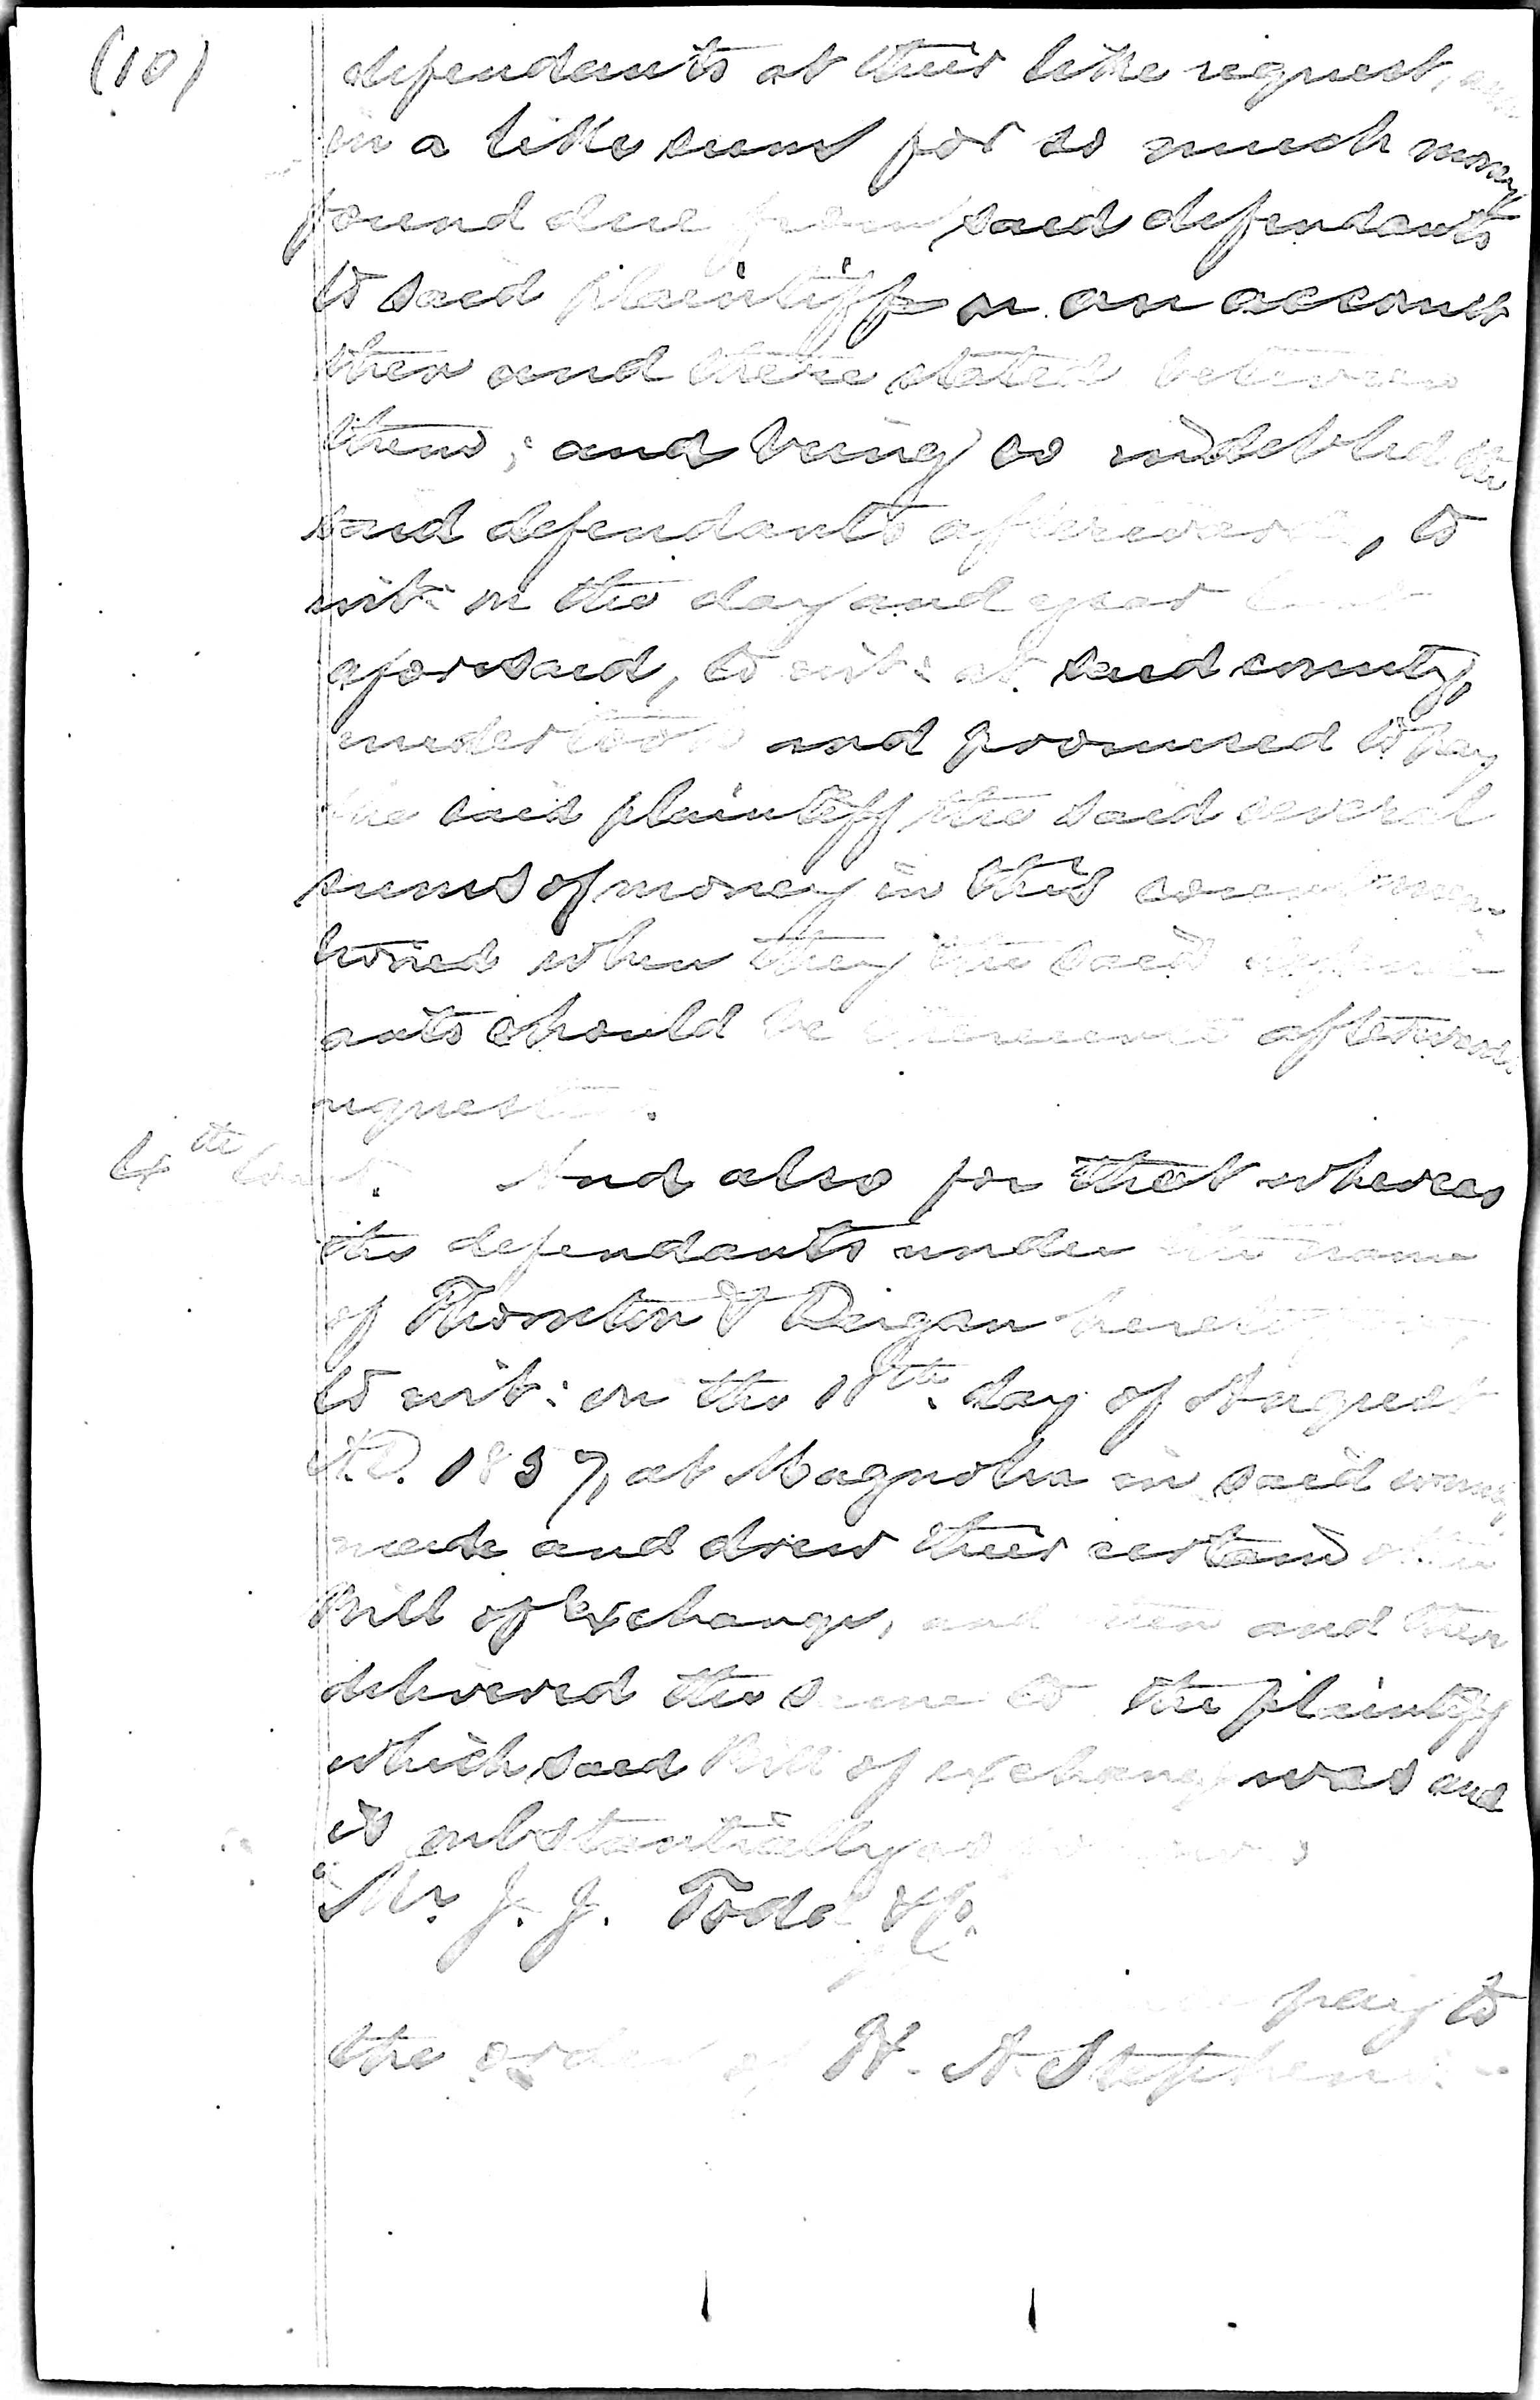 (10)
defendants at their like request, and
in a like sum for so much money
found due from said defendants
to said plaintiff on an account
then and there stated between
them; and being so indebted the
said defendants afterwards, to
wit: on the day and year last
aforesaid, to wit: at said county,
undertook and promised to pay
the said plaintiff the said several
sums of money in this count men-
tioned when they the said defend-
ants should be thereunto afterwards
requested.
4th Count. And also for that whereas
the defendants under the name
of Thornton & Deigan heretofore
to wit: on the 18th day of August
A.D. 1857, at Magnolia in said county
made and drew their certain
Bill of Exchange, and then and there
delivered the same to the plaintiff
which said Bill of exchange was and
is substantially as follows,
"Mr. J. J. Todd &
pay to
the order of H. A. Stephens